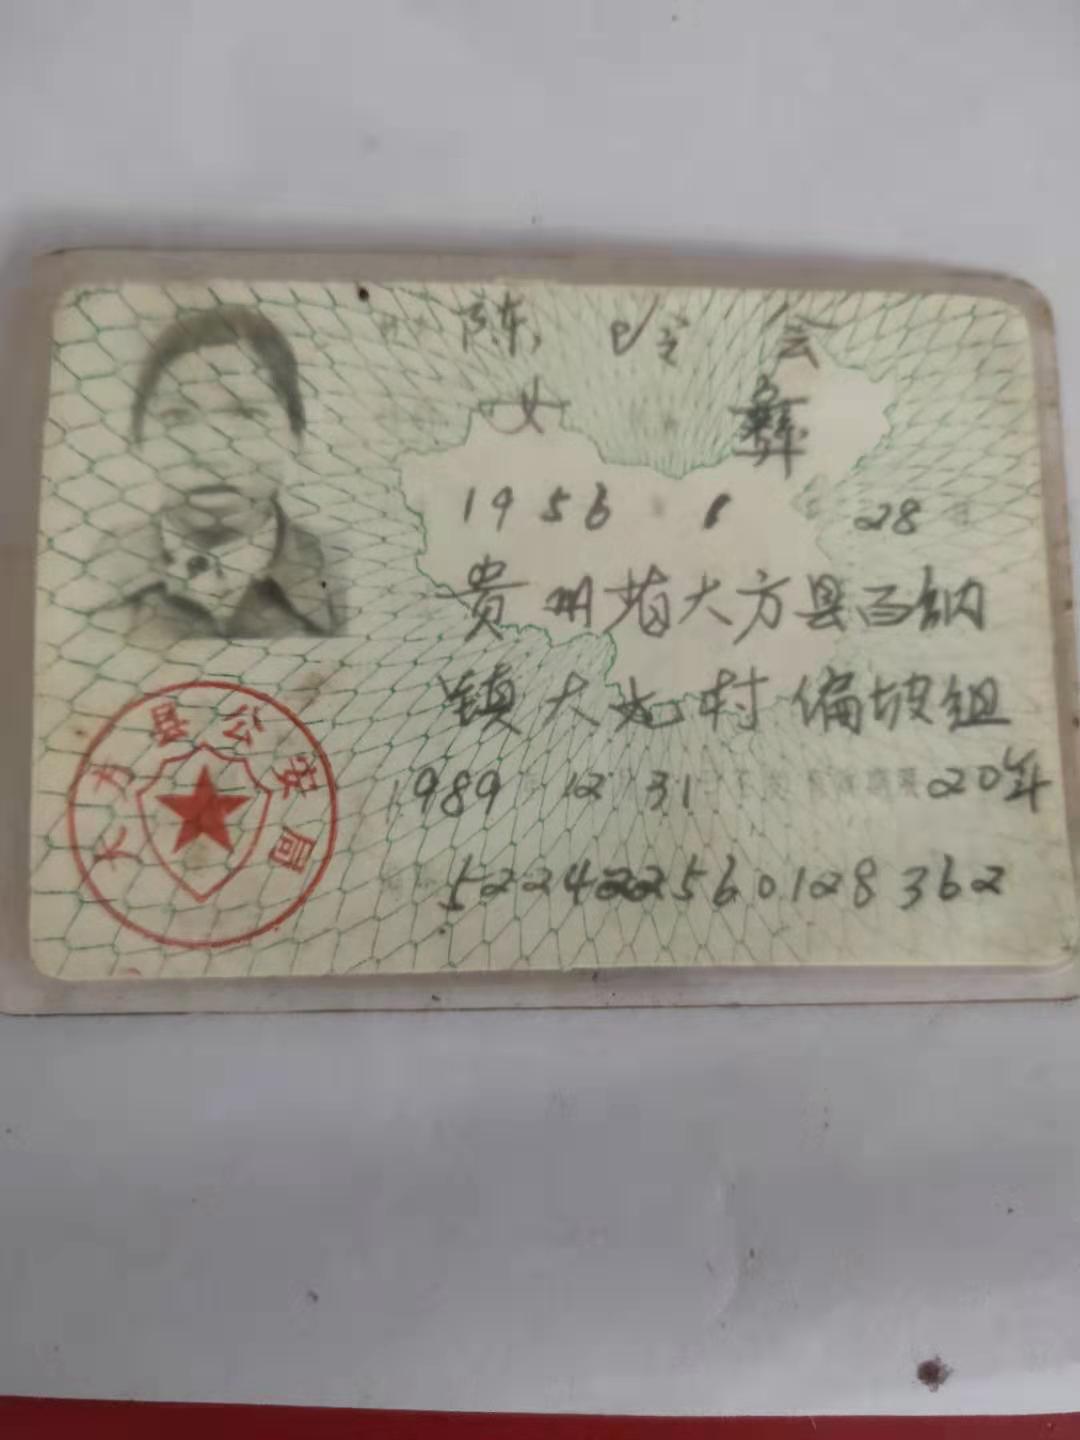 陈 吟 会
女 彝
1956 1 28
贵州省大方县百纳
镇大尤村偏坡组
1989 12 31 20年
522422560128362
大方县公安局